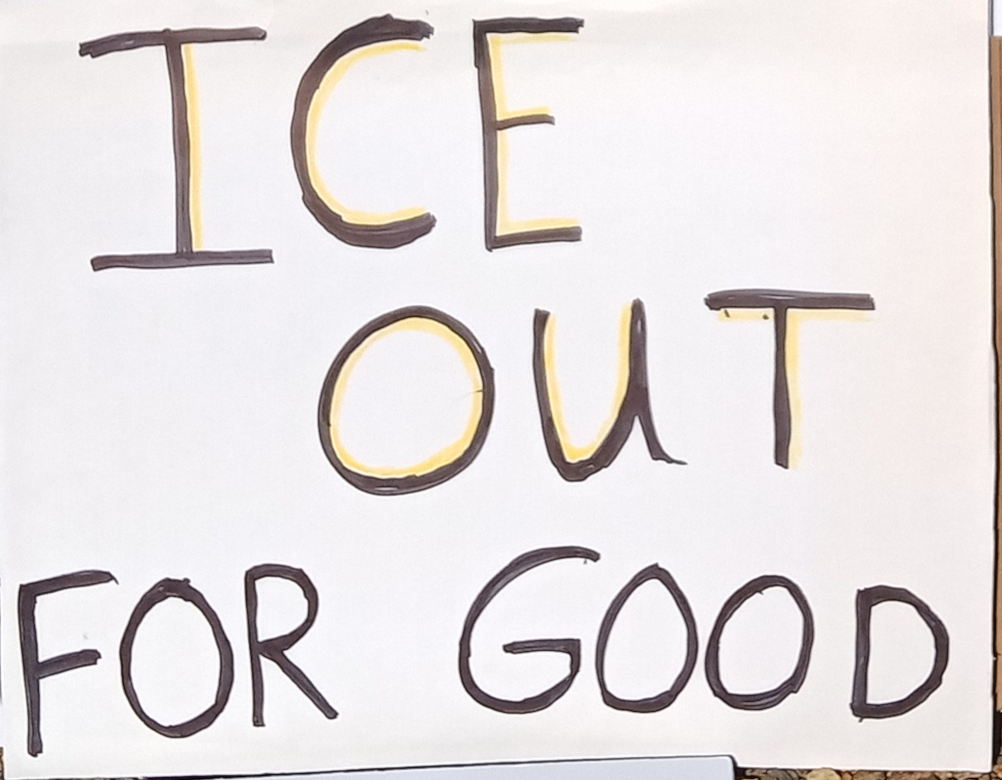 ICE
OUT
FOR GOOD